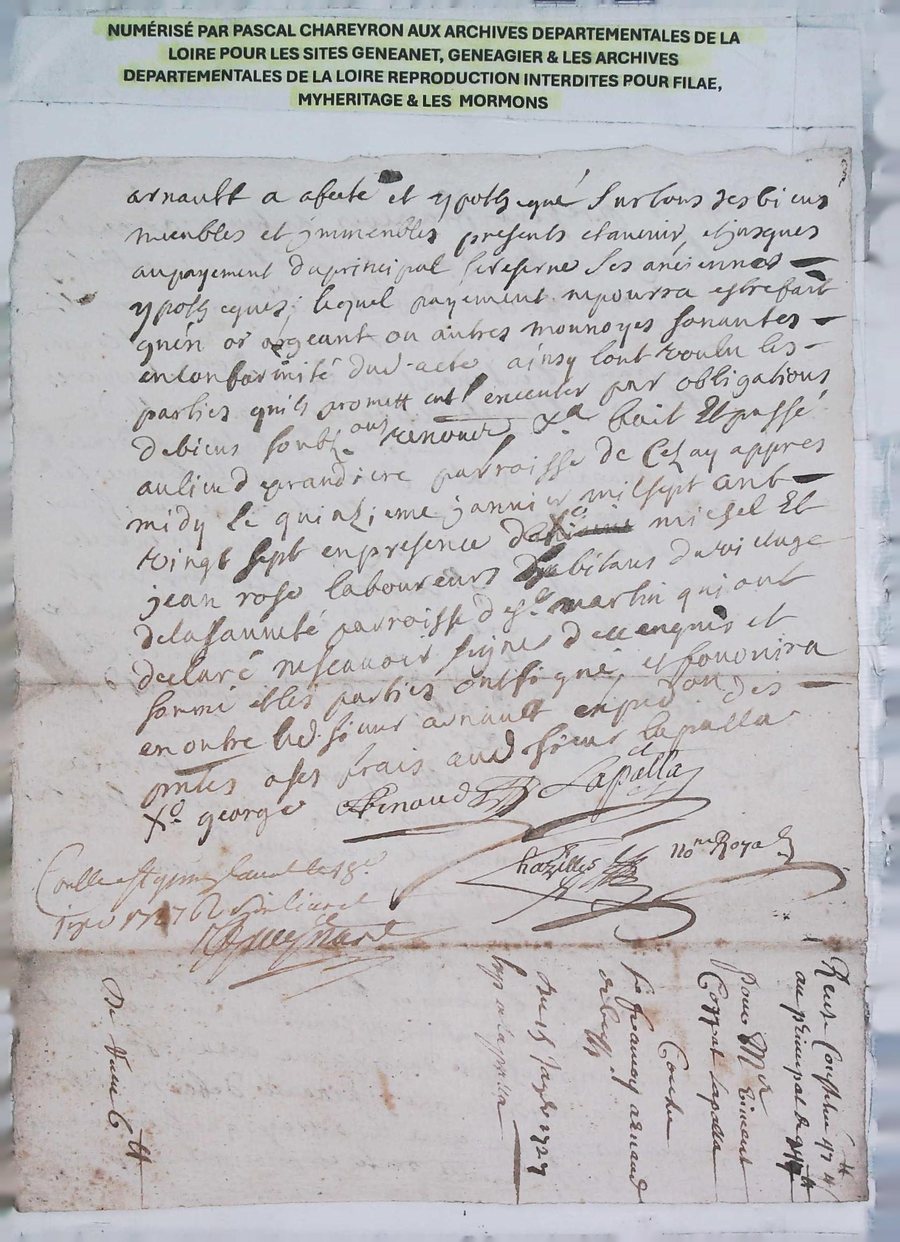 NUMÉRISÉ PAR PASCAL CHAREYRON AUX ARCHIVES DEPARTEMENTALES DE LA
LOIRE POUR LES SITES GENEANET, GENEAGIER & LES ARCHIVES
DEPARTEMENTALES DE LA LOIRE REPRODUCTION INTERDITES POUR FILAE,
MYHERITAGE & LES MORMONS
arnault a afecté et ypothequé sur tous ses biens
meubles et jmmeubles presents et avenir, et jusques
au payement du principal se reserve ses anciennes
ypotheques; lequel payement ne pourra estre fait
qu'en or argeant ou autres monnoyes sonantes
en conformité dud acte ainsy l'ont voulu les
parties qu'ils promettent executer par obligations
de biens soubz renonce fait Et passé
au lieu parroisse de Cezay appres
midy le quinzieme janvier mil sept cent
vingt sept en presence de michel Et
jean rose laboureurs habitans du village
de parroisse de st martin qui ont
declaré ne scavoir signer de ce enquis et
sommé et les parties ont signé, et fournira
en outre led sieur arnault des
pntes a ses frais aud sieur lapalla
george Arnaud Lapalla
Chazelles no.re Royal
1727
De Vum 6 tt
lapalla
Du 15 Janv.er 1727
debtt
sr francoy arnaud
Contre
Cossat Lapalla
pour Mr vincent
au principal de
Rente Constituée